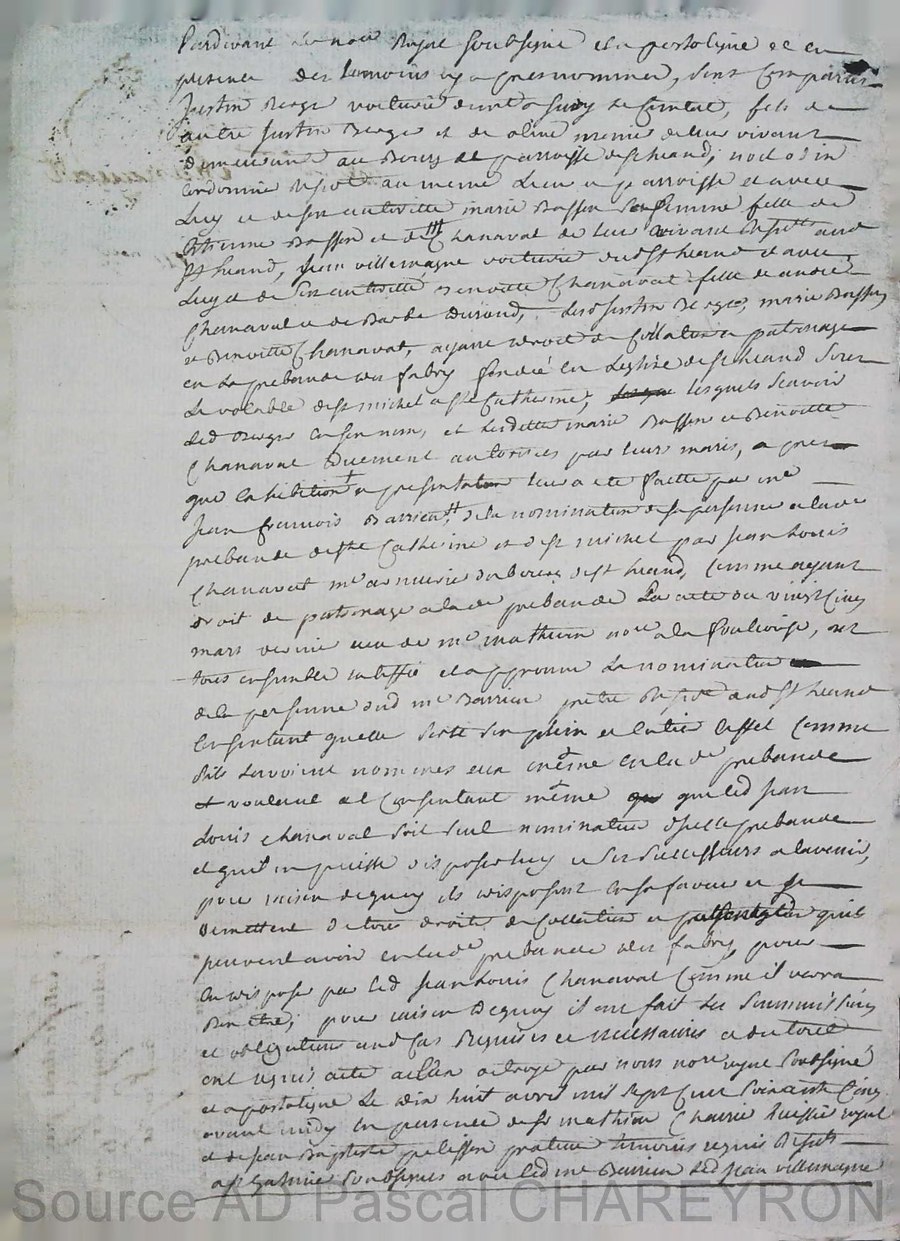 Pardevant le no.re Royal soubsigné et apostolique et en
presence des temoins cy apres nommes, sont comparus
Justin Berge voiturié de de fils de
autre Justin Berge et de marie de leur vivant
demeurant au Bourg et parroisse de st heand,
Cordonnie au meme Lieu et parroisse et avec
Luy et de son authorité marie Basson sa femme fille de
Estienne Basson et de Chanavat de leur vivant aud
st heand, Jean villemagne voiturié dud st heand et avec
Luy et de son authorité Benoitte Chanavat fille de andré
Chanavat et de Durand, lesd Justin Berge, marie Basson
et Benoitte Chanavat, ayant droit de Collation et patronage
en la prebande des fabry fondée en Leglise de st heand sous
Le vocable de st michel et ste Catherine, lesquels scavoir
led Berge en son nom, et lesdittes marie Basson et Benoitte
Chanavat duement autorisées par leur maris, apres
que Lexhibition et presentation leur a eté faitte par me
Jean francois Barrieu de la nomination de sa personne a lade
prebande de ste Catherine et de st michel par Jean Louis
Chanavat me armurié du bourg de st heand, Comme ayant
droit de patronage a lade prebande Par acte du vingt Cinq
mars dernié receu de me mathevon no.re a la fouliouse, ont
tous ensemble ratiffié et approuvé La nomination
de la personne dud me Barrieu pretre aud st heand
Consentant quelle sorte son plein et entier Effet Comme
sils Lavoient nommes eux même en lade prebande
et voulant et Consentant même que led Jean
Louis Chanavat soit seul nominateur de prebande
et quil en puisse disposer luy et ses successeurs a lavenir,
pour raison dequoy ils disposent en sa faveur et se
demettent de tous droits de Collation et presentation quils
peuvent avoir en lade prebande des fabry pour
En disposer par led Jean Louis Chanavat Comme il verra
Bon Etre, pour raison dequoy il ont fait les soummissions
et obligations aud Cas Requises et necessaires et du tout
ont requis acte a Eux octroyé par nous no.re royal soubsigné
et apostolique Le dix huit avril mil sept Cent Cinquante Cinq
avant midy En presence de sr mathieu huissié royal
et de Jean Baptiste pelisson praticien temoins requis
a st Galmié soubsignes avec led me Barrieu led Jean villemagne
Source AD Pascal CHAREYRON